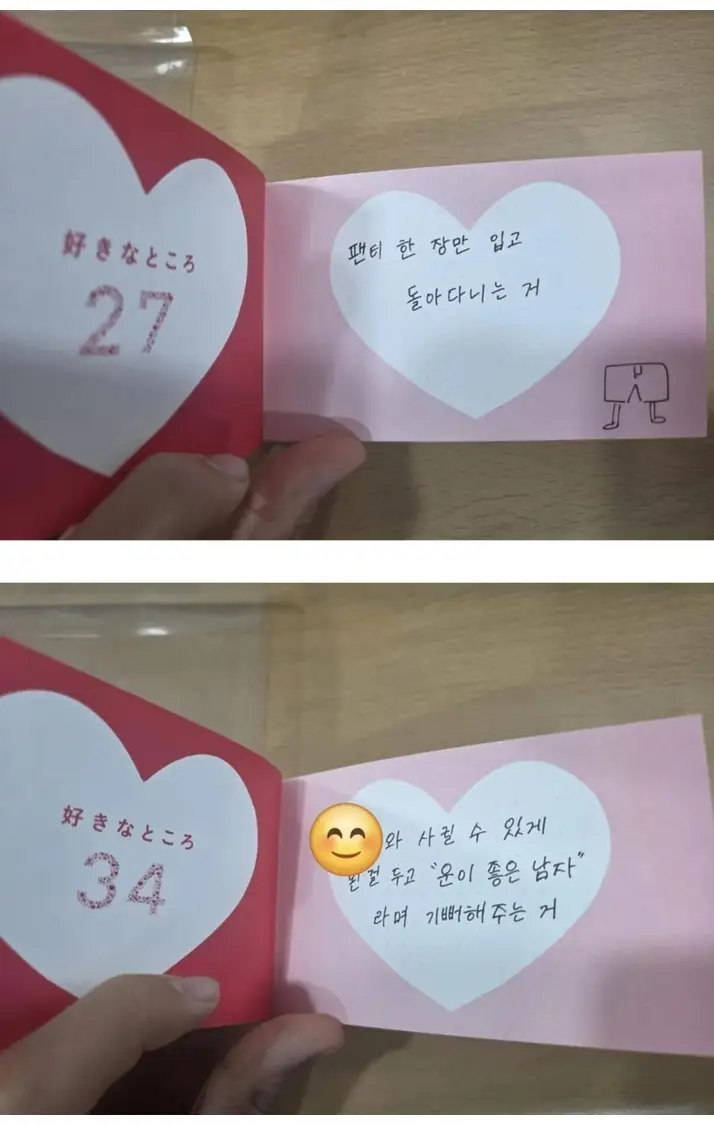 好きなところ
27
팬티 한 장만 입고
돌아다니는 거
好きなところ
34
와 사귈 수 있게
된걸 두고 "운이 좋은 남자"
라며 기뻐해주는 거